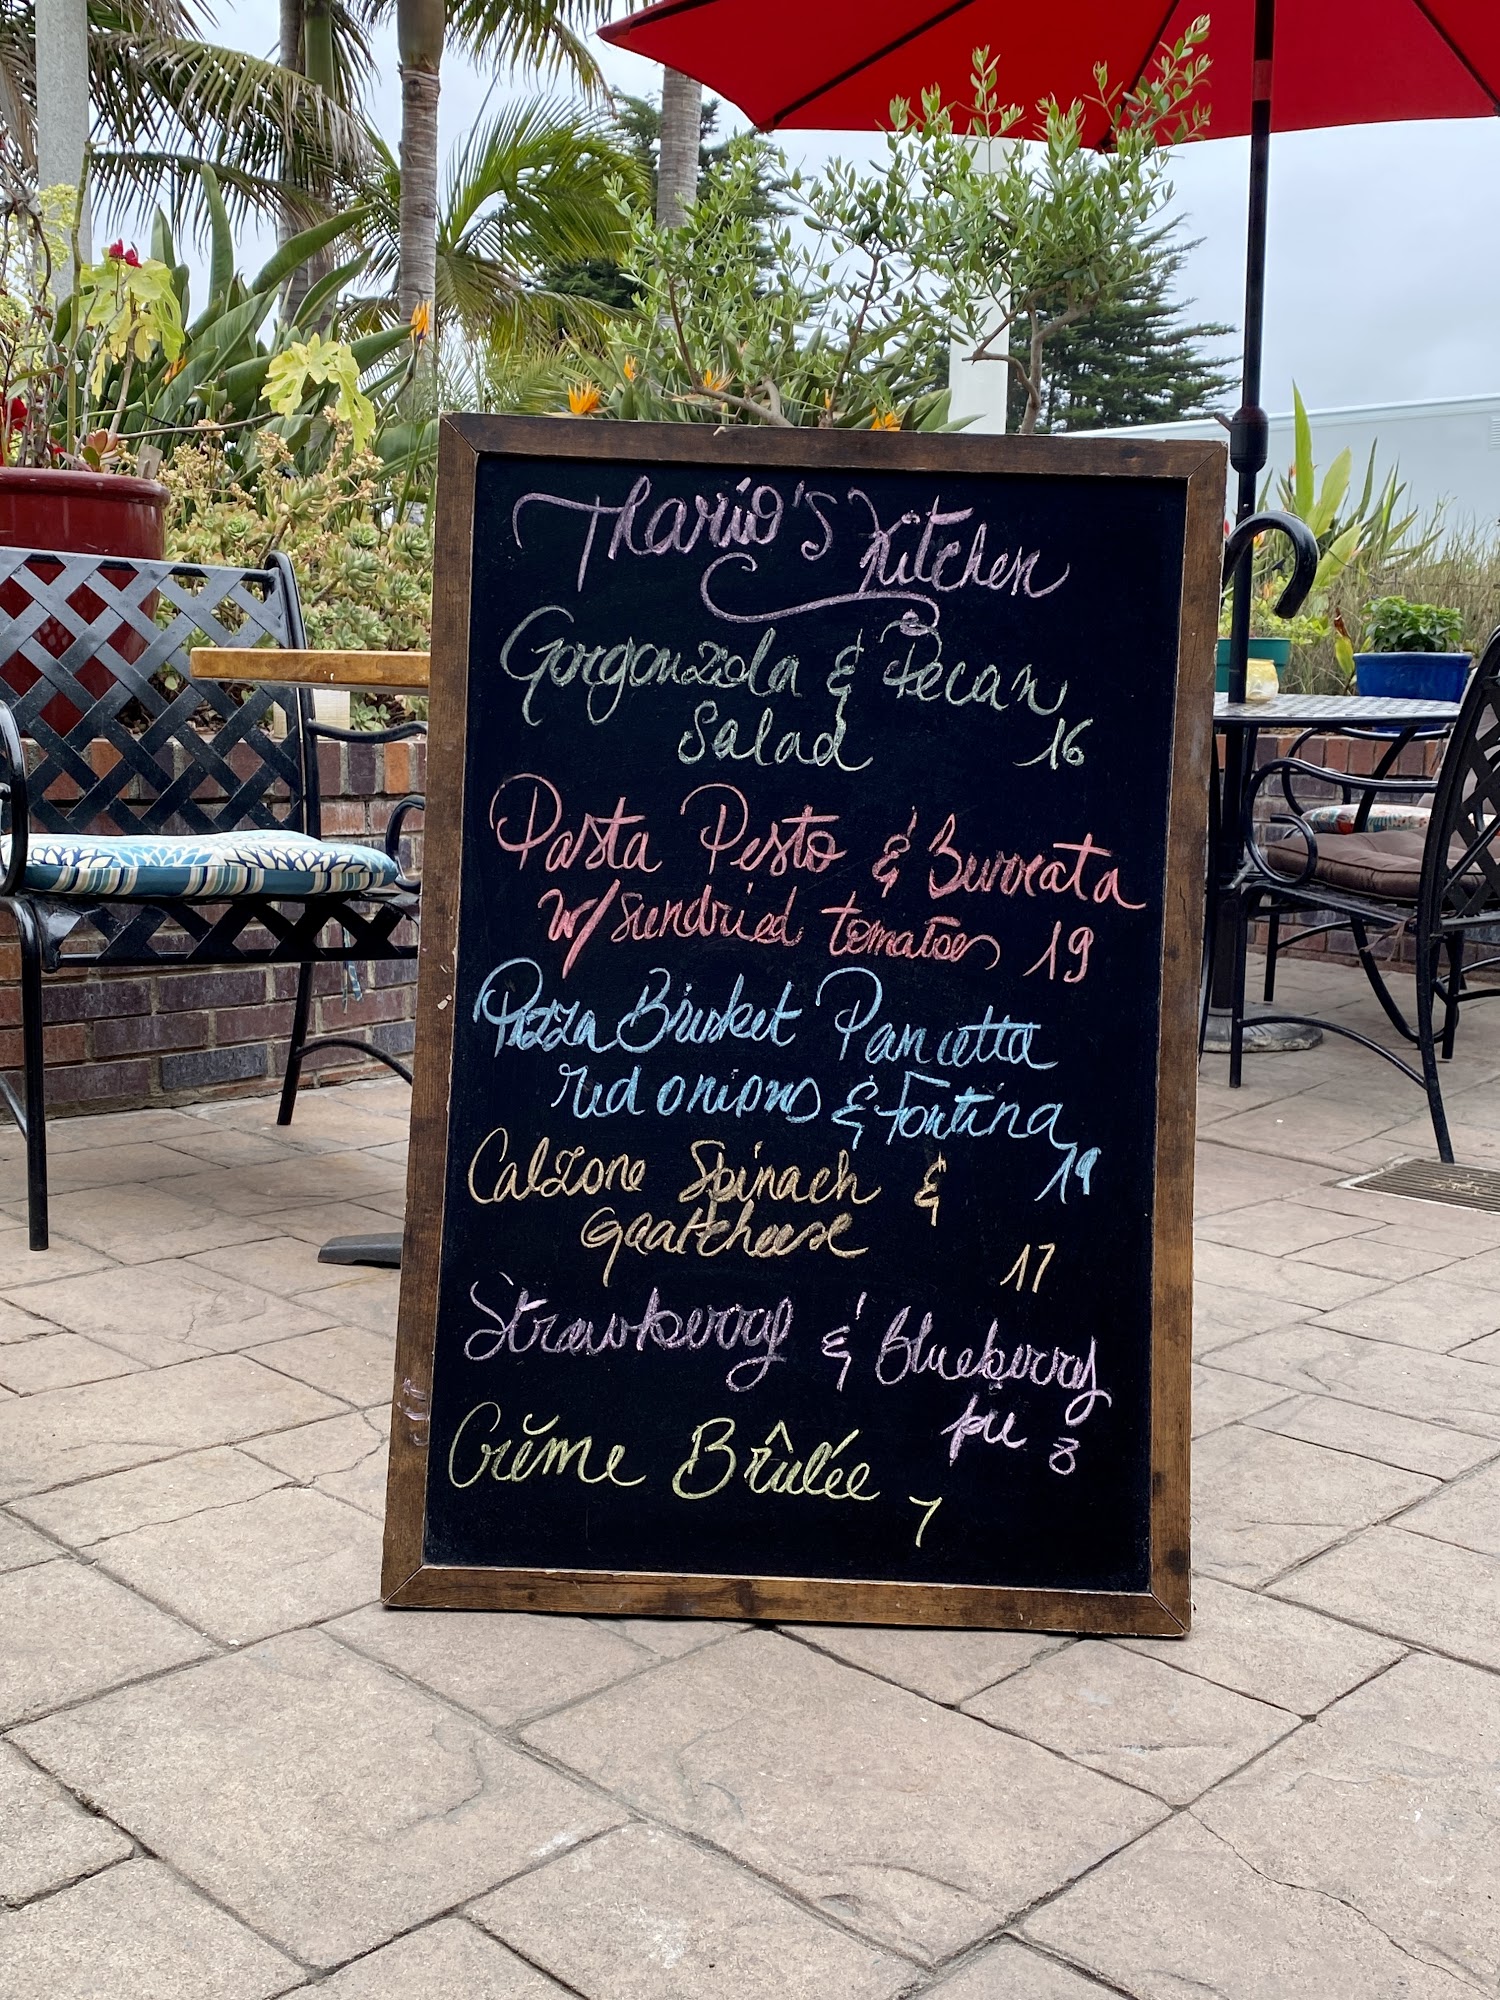 Mario's Kitchen
Gorgonzola & Pecan
Salad 16
Pasta Pesto & Burrata
w/ sundried tomatoes 19
Pizza Brisket Pancetta
red onions & Fontina
19
Calzone Spinach &
Goatcheese 17
Strawberry & Blueberry
pie 8
Crème Brûlée 7